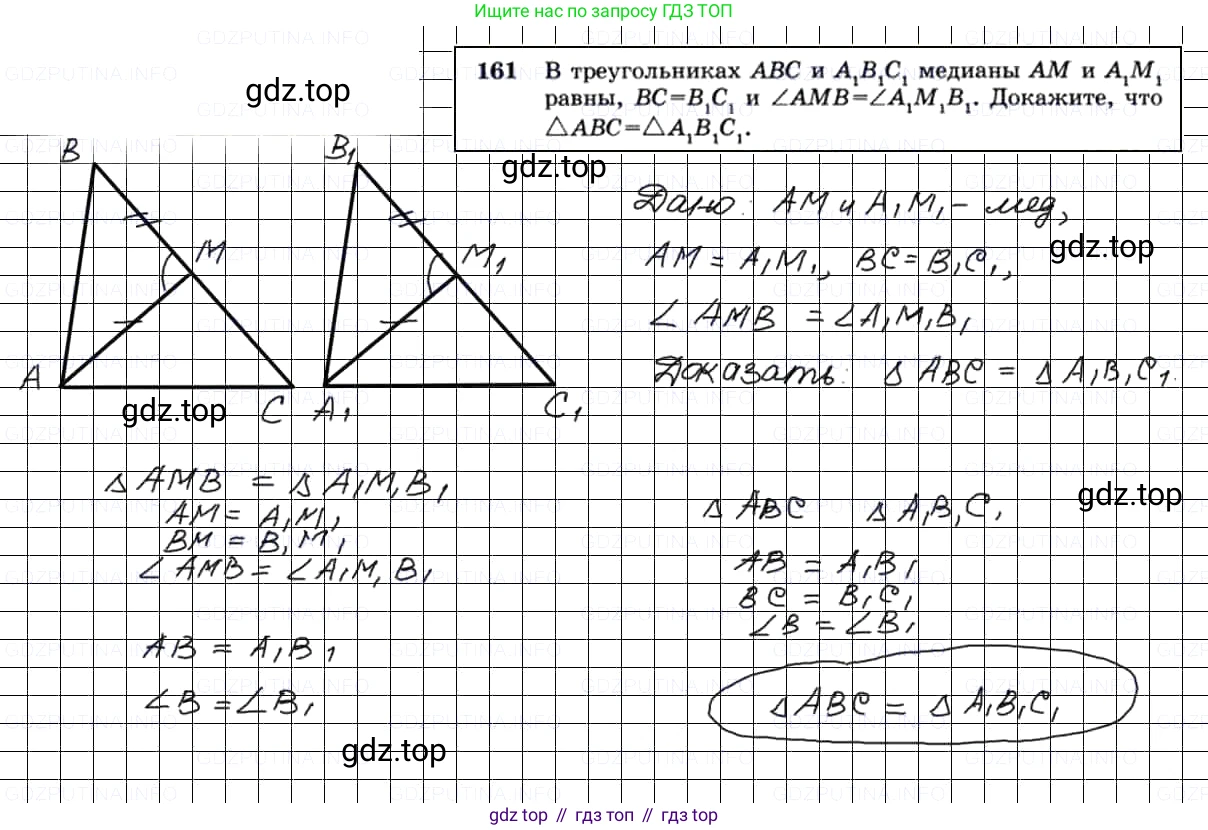 Ищите нас по запросу ГДЗ ТОП
161 В треугольниках ABC и A₁B₁C₁ медианы AM и A₁M₁
равны, BC=B₁C₁ и ∠AMB=∠A₁M₁B₁. Докажите, что
△ABC=△A₁B₁C₁.
gdz.top
B
B₁
gdz.top
M
M₁
A
C
A₁
C₁
gdz.top
Дано: AM и A₁M₁ - мед,
gdz.top
AM = A₁M₁, BC = B₁C₁,
∠AMB = ∠A₁M₁B₁
Доказать: △ABC = △A₁B₁C₁.
△AMB = △A₁M₁B₁
AM = A₁M₁
BM = B₁M₁
∠AMB = ∠A₁M₁B₁
AB = A₁B₁
∠B = ∠B₁
gdz.top
gdz.top
△ABC △A₁B₁C₁
AB = A₁B₁
BC = B₁C₁
∠B = ∠B₁
△ABC = △A₁B₁C₁
gdz top // гдз топ // гдз top
GDZPUTINA.INFO